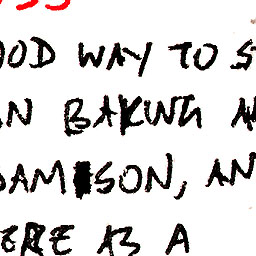 OOD WAY TO S
N BAKING A
DAMISON, AN
ERE IS A